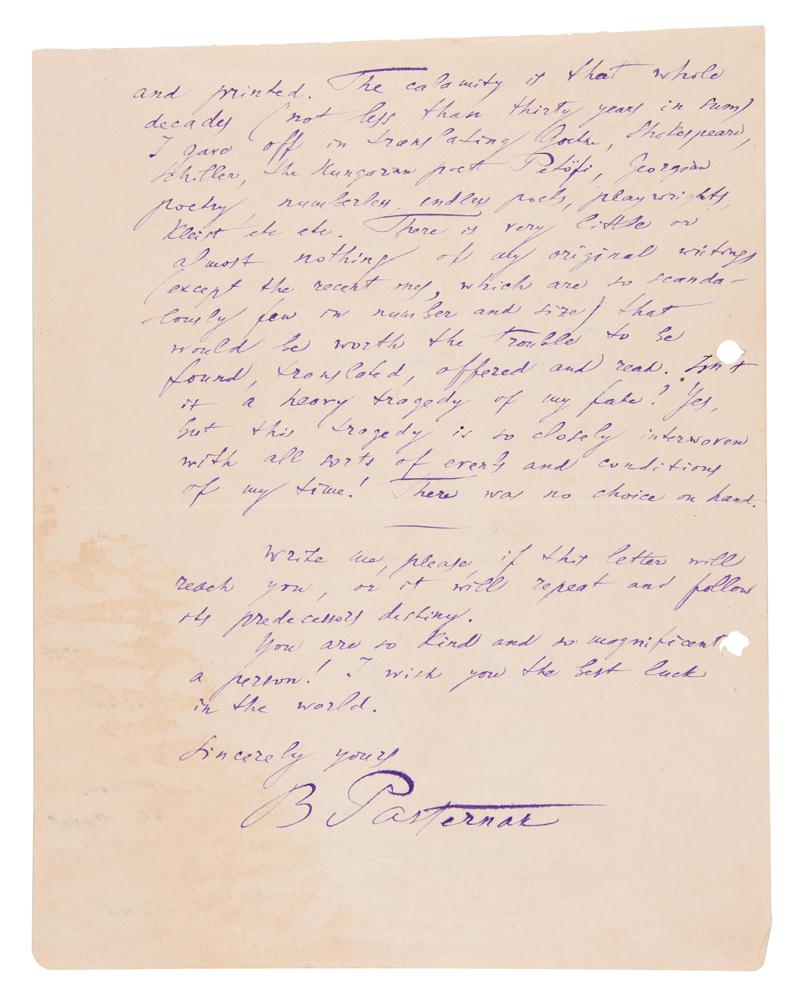 and printed. The calamity is that whole
decades (not less than thirty years in sum)
I gave off in translating Goethe, Shakespeare,
Schiller, the Hungarian poet Petöfi, Georgian
poetry, numberless, endless poets, playwrights,
Kleist etc etc. There is very little or
almost nothing of my original writings
(except the recent ones, which are so scanda-
lously few in number and size) that
would be worth the trouble to be
found, translated, offered and read. Isn't
it a heavy tragedy of my fate? Yes,
but this tragedy is so closely interwoven
with all sorts of events and conditions
of my time! There was no choice on hand.
Write me, please, if this letter will
reach you, or it will repeat and follow
its predecessors destiny.
You are so kind and so magnificent
a person! I wish you the best luck
in the world.
Sincerely yours
B Pasternak